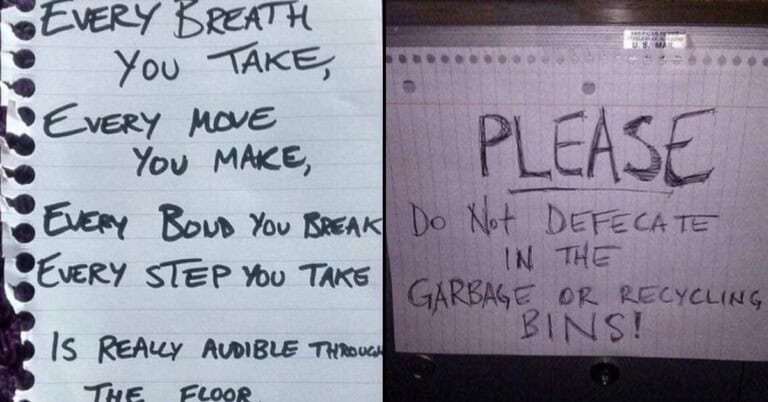 EVERY BREATH
YOU TAKE,
EVERY MOVE
YOU MAKE,
EVERY BOND YOU BREAK
EVERY STEP YOU TAKE
IS REALLY AUDIBLE THROUGH
THE FLOOR
U.S. MAIL
PLEASE
Do Not DEFECATE
IN THE
GARBAGE OR RECYCLING
BINS!